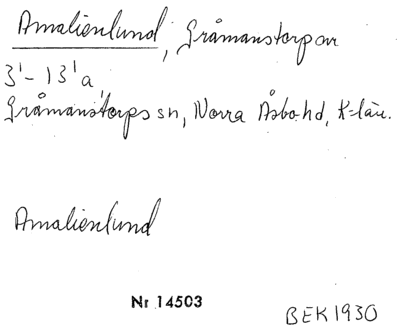 Amalienlund, Gråmanstorp ar
3'-13'a,
Gråmanstorps sn, Norra Åsbo hd, K-län.
Amalienlund
Nr 14503
BEK 1930